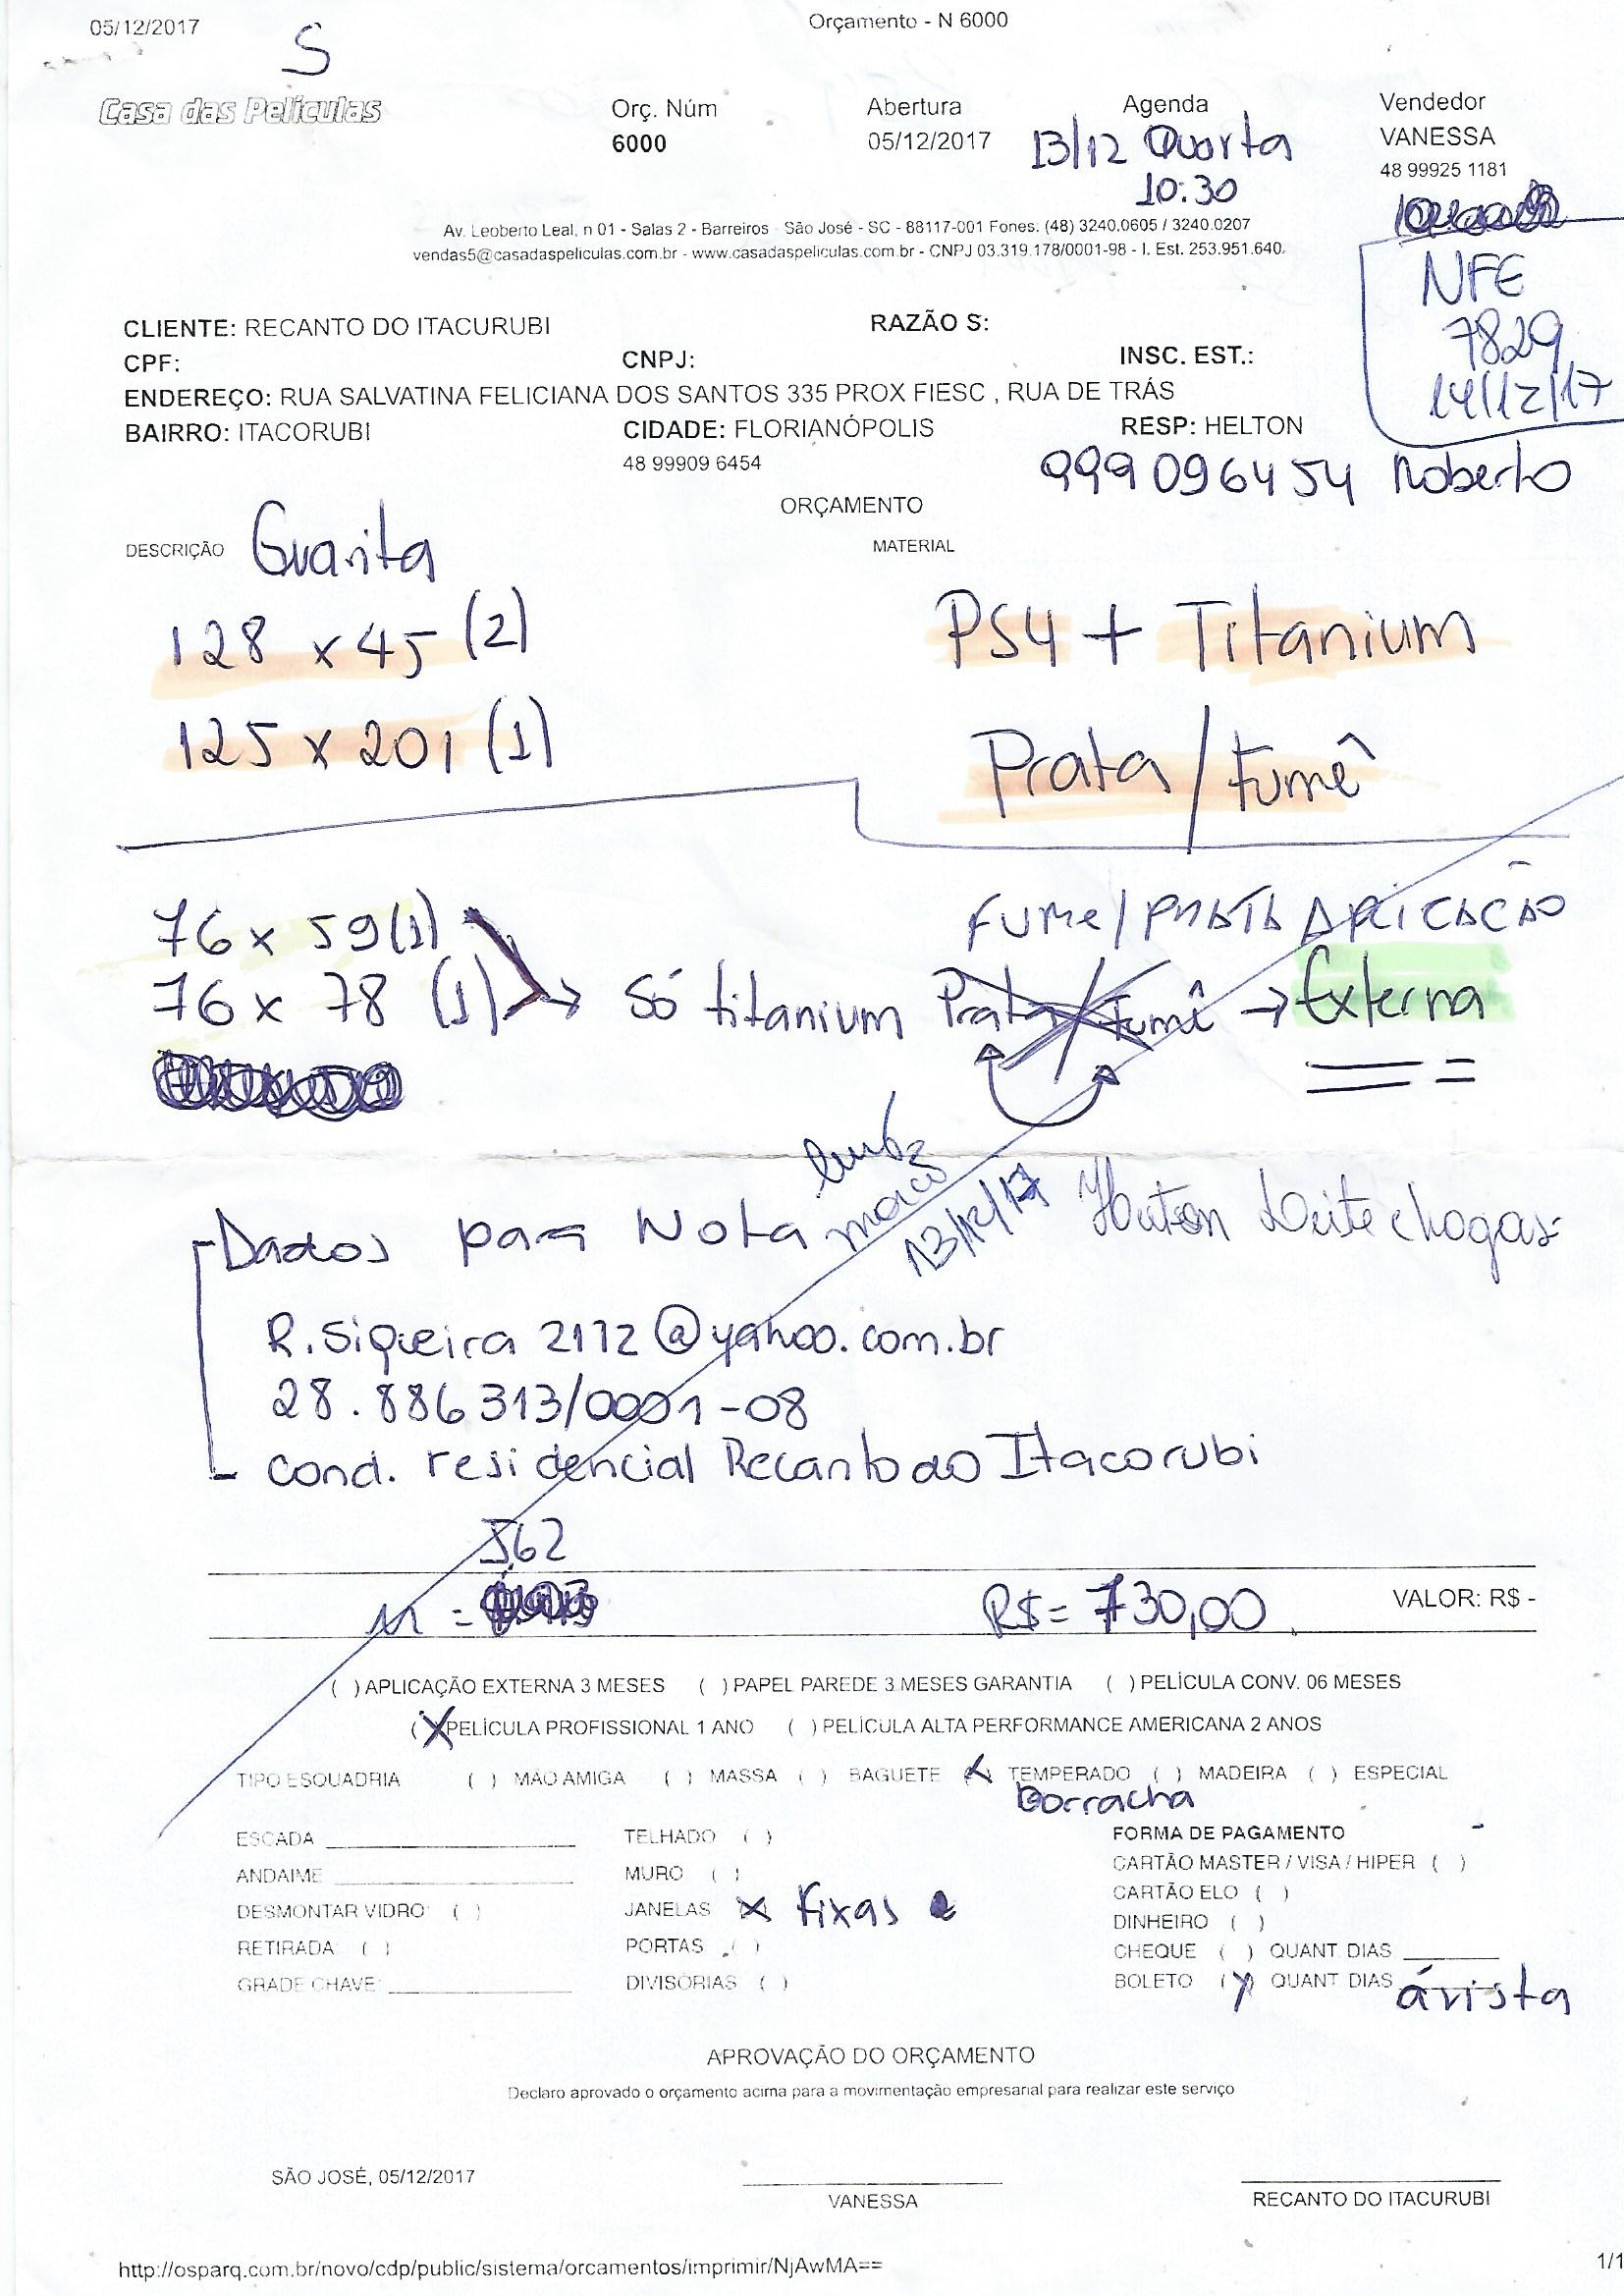 05/12/2017
Orçamento - N 6000
S
Casa das Películas
Orç. Núm
6000
Abertura
05/12/2017
Agenda
13/12 Quarta
10:30
Vendedor
VANESSA
48 99925 1181
Av. Leoberto Leal, n 01 - Salas 2 - Barreiros - São José - SC - 88117-001 Fones: (48) 3240.0605 / 3240.0207
vendas5@casadaspeliculas.com.br - www.casadaspeliculas.com.br - CNPJ 03.319.178/0001-98 - I. Est. 253.951.640.
NFE
7829
14/12/17
CLIENTE: RECANTO DO ITACURUBI RAZÃO S:
CPF: CNPJ: INSC. EST.:
ENDEREÇO: RUA SALVATINA FELICIANA DOS SANTOS 335 PROX FIESC , RUA DE TRÁS
BAIRRO: ITACORUBI CIDADE: FLORIANÓPOLIS RESP: HELTON
48 99909 6454
999096454 Roberto
ORÇAMENTO
DESCRIÇÃO Guarita MATERIAL
128 x 45 (2) PS4 + Titanium
125 x 201 (1) Prata / Fumê
FUME / PRATA APLICAÇÃO
76 x 59 (1)
76 x 78 (1) → Só titanium Prata / Fumê → Externa
13/12/17
Dados para Nota
R.Siqueira 2112@yahoo.com.br
28.886313/0001-08
cond. residencial Recanto do Itacorubi
562
M = R$ = 730,00 VALOR: R$ -
( ) APLICAÇÃO EXTERNA 3 MESES ( ) PAPEL PAREDE 3 MESES GARANTIA ( ) PELÍCULA CONV. 06 MESES
(X) PELÍCULA PROFISSIONAL 1 ANO ( ) PELÍCULA ALTA PERFORMANCE AMERICANA 2 ANOS
TIPO ESQUADRIA ( ) MÃO AMIGA ( ) MASSA ( ) BAGUETE (X) TEMPERADO ( ) MADEIRA ( ) ESPECIAL
Borracha
ESCADA TELHADO ( ) FORMA DE PAGAMENTO
ANDAIME MURO ( ) CARTÃO MASTER / VISA / HIPER ( )
DESMONTAR VIDRO ( ) JANELAS X Fixas CARTÃO ELO ( )
DINHEIRO ( )
RETIRADA ( ) PORTAS ( ) CHEQUE ( ) QUANT DIAS
GRADE CHAVE: DIVISÓRIAS ( ) BOLETO (X) QUANT DIAS ávista
APROVAÇÃO DO ORÇAMENTO
Declaro aprovado o orçamento acima para a movimentação empresarial para realizar este serviço
SÃO JOSÉ, 05/12/2017
VANESSA
RECANTO DO ITACURUBI
http://osparq.com.br/novo/cdp/public/sistema/orcamentos/imprimir/NjAwMA==
1/1